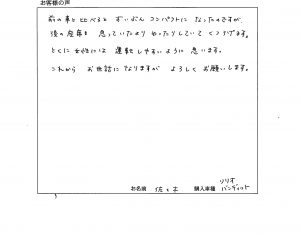 お客様の声
前の車と比べると ずいぶん コンパクトに なったのですが、
後の座席も 思っていたより ゆったりしていて くつろげます。
とくに女性には 運転しやすいように思います。
これから お世話になりますが よろしくお願いします。
お名前 佐々木 購入車種 ソリオ
バンディット